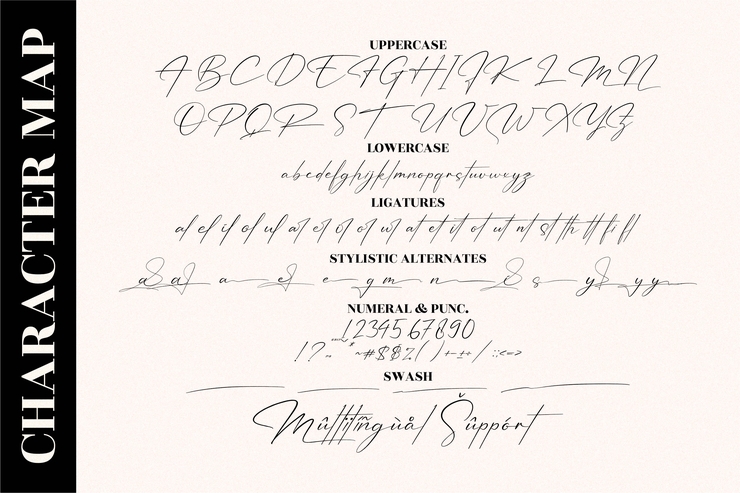 CHARACTER MAP
UPPERCASE
A B C D E F G H I J K L M N
O P Q R S T U V W X Y Z
LOWERCASE
abcdefghijklmnopqrstuvwxyz
LIGATURES
al el il ol ul at et it ot ut nt st th tt fi fl
STYLISTIC ALTERNATES
NUMERAL & PUNC.
1234567890
SWASH
Mûltilingùål Šûppórt